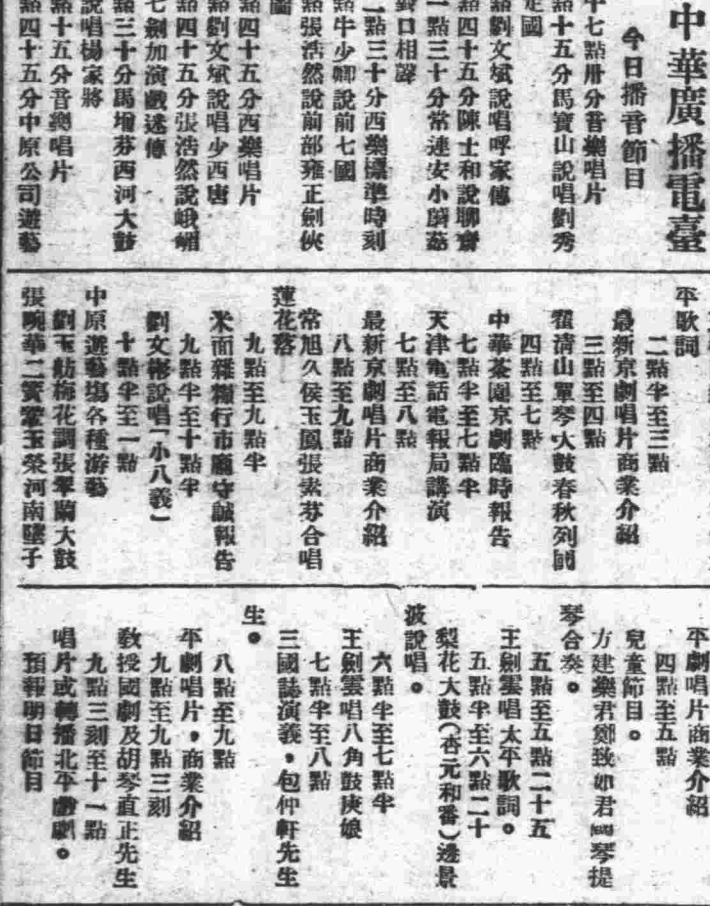 中華廣播電臺
今日播音節目
午七點卅分音樂唱片
點十五分馬寶山說唱劉秀
走國
點劉文斌說唱呼家傳
點四十五分陳士和說聊齋
一點三十分常連安小蘑菇
對口相聲
一點三十分西樂標準時刻
點牛少卿說前七國
點張浩然說前部雍正劍俠
圖
點四十五分西樂唱片
點劉文斌說唱少西唐
點四十五分張浩然說峨嵋
七劍加演戲迷傳
點三十分馬增芬西河大鼓
說唱楊家將
點十五分音樂唱片
點四十五分中原公司遊藝
平歌詞
二點半至三點
最新京劇唱片商業介紹
三點至四點
霍清山單琴大鼓春秋列國
四點至七點
中華茶園京劇臨時報告
七點半至七點半
天津電話電報局講演
七點至八點
最新京劇唱片商業介紹
八點至九點
常旭久侯玉鳳張素芬合唱
蓮花落
九點至九點半
米面雜糧行市龐守誠報告
九點半至十點半
劉文彬說唱「小八義」
十點半至一點
中原遊藝塲各種游藝
劉玉舫梅花調張翠蘭大鼓
張婉華二簧鞏玉榮河南墜子
平劇唱片商業介紹
四點至五點
兒童節目。
方建樂君鄭致如君國琴提
琴合奏。
五點至五點二十五
王劍雲唱太平歌詞。
五點半至六點二十
梨花大鼓(杏元和番)邊景
波說唱。
六點半至七點半
王劍雲唱八角鼓庚娘
七點半至八點
三國誌演義，包仲軒先生
生。
八點至九點
平劇唱片，商業介紹
九點至九點三刻
敎授國劇及胡琴直正先生
九點三刻至十一點
唱片或轉播北平戲劇。
預報明日節目